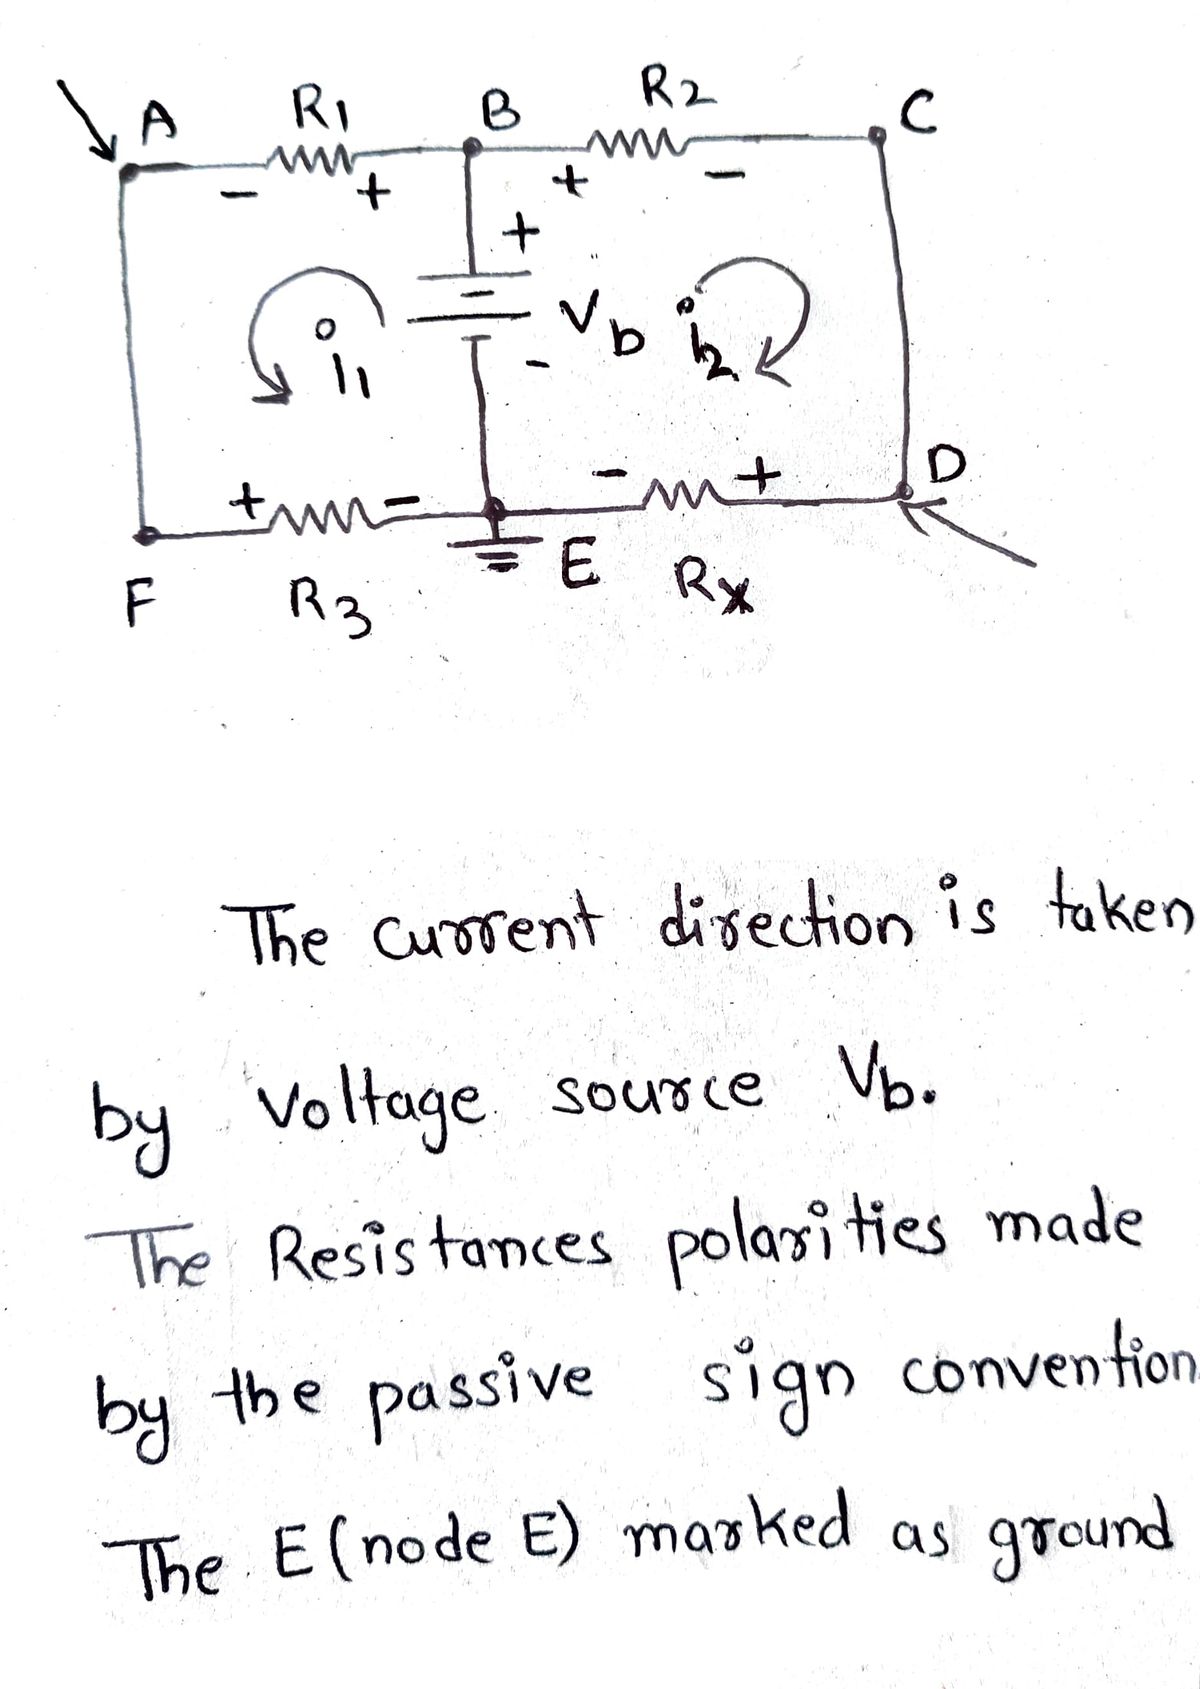 A R1 B R2 C
- + + -
+
i1 Vb i2
-
+ - - + D
F R3 E Rx
The current direction is taken
by voltage source Vb.
The Resistances polarities made
by the passive sign convention
The E (node E) marked as ground